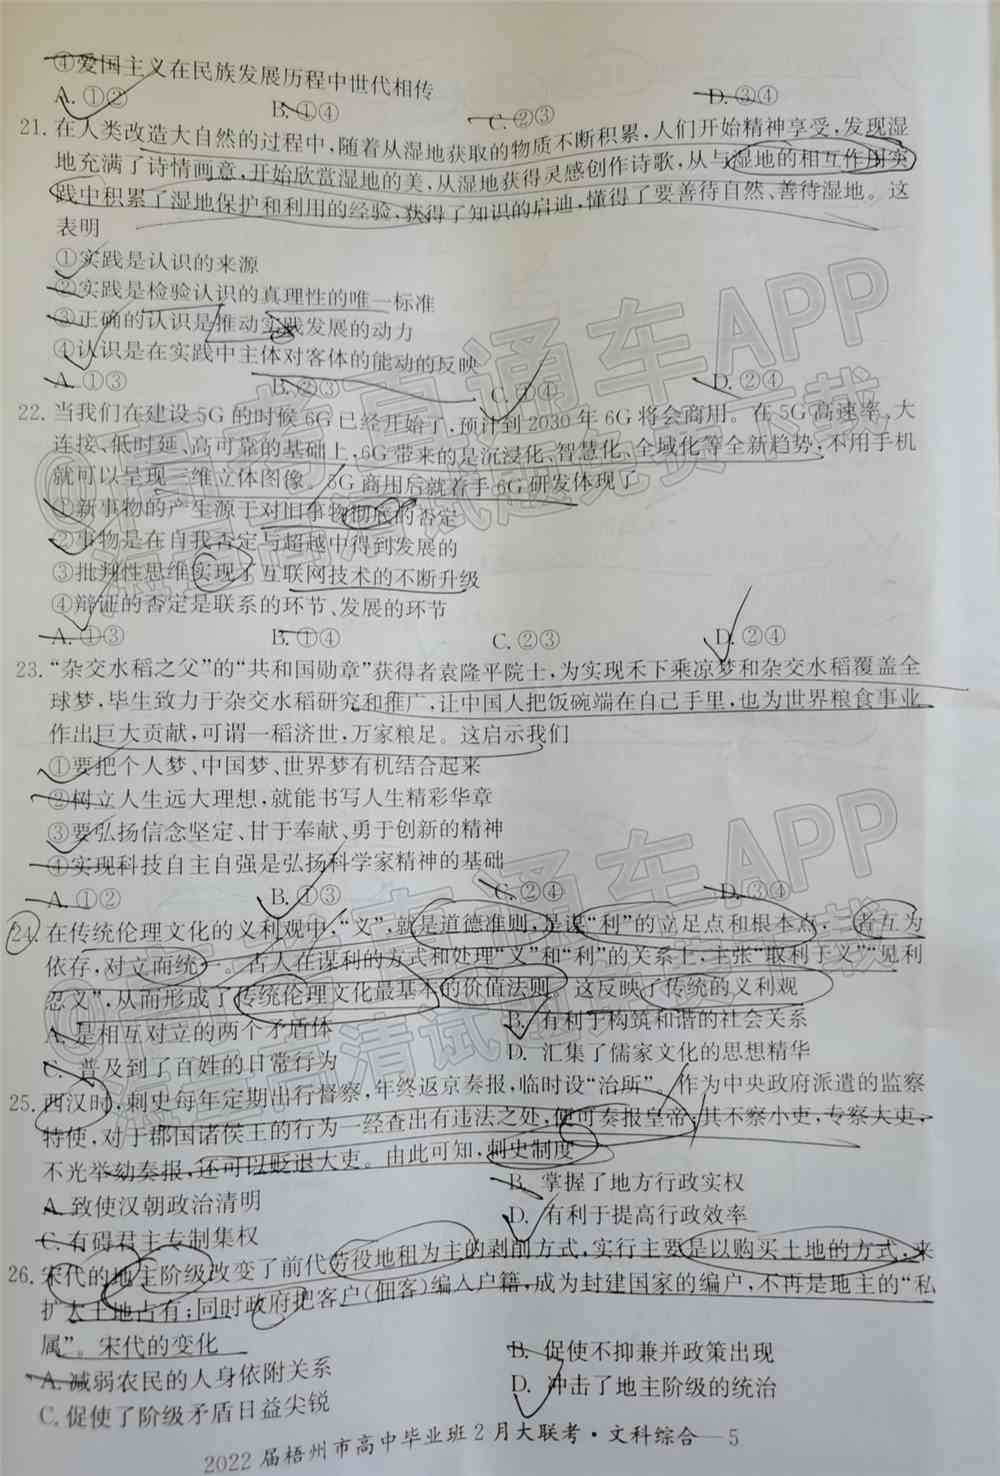 ④爱国主义在民族发展历程中世代相传
A. ①② B. ①④ C. ②③ D. ③④
21. 在人类改造大自然的过程中,随着从湿地获取的物质不断积累,人们开始精神享受,发现湿
地充满了诗情画意,开始欣赏湿地的美,从湿地获得灵感创作诗歌,从与湿地的相互作用实
践中积累了湿地保护和利用的经验,获得了知识的启迪,懂得了要善待自然、善待湿地。这
表明
①实践是认识的来源
②实践是检验认识的真理性的唯一标准
③正确的认识是推动实践发展的动力
④认识是在实践中主体对客体的能动的反映
A. ①③ B. ②③ C. ①④ D. ②④
22. 当我们在建设 5G 的时候 6G 已经开始了,预计到 2030 年 6G 将会商用。在 5G 高速率、大
连接、低时延、高可靠的基础上,6G 带来的是沉浸化、智慧化、全域化等全新趋势;不用手机
就可以呈现三维立体图像。5G 商用后就着手 6G 研发体现了
①新事物的产生源于对旧事物彻底的否定
②事物是在自我否定与超越中得到发展的
③批判性思维实现了互联网技术的不断升级
④辩证的否定是联系的环节、发展的环节
A. ①③ B. ①④ C. ②③ D. ②④
23. “杂交水稻之父”的“共和国勋章”获得者袁隆平院士,为实现禾下乘凉梦和杂交水稻覆盖全
球梦,毕生致力于杂交水稻研究和推广,让中国人把饭碗端在自己手里,也为世界粮食事业
作出巨大贡献,可谓一稻济世,万家粮足。这启示我们
①要把个人梦、中国梦、世界梦有机结合起来
②树立人生远大理想,就能书写人生精彩华章
③要弘扬信念坚定、甘于奉献、勇于创新的精神
④实现科技自主自强是弘扬科学家精神的基础
A. ①② B. ①③ C. ②④ D. ③④
24. 在传统伦理文化的义利观中,“义”,就是道德准则,是谋“利”的立足点和根本点,二者互为
依存,对立而统一。古人在谋利的方式和处理“义”和“利”的关系上,主张“取利于义”“见利
忍义”,从而形成了传统伦理文化最基本的价值法则。这反映了传统的义利观
A. 是相互对立的两个矛盾体 B. 有利于构筑和谐的社会关系
C. 普及到了百姓的日常行为 D. 汇集了儒家文化的思想精华
25. 西汉时,刺史每年定期出行督察,年终返京奏报,临时设“治所”。作为中央政府派遣的监察
特使,对于郡国诸侯王的行为一经查出有违法之处,便可奏报皇帝;其不察小吏,专察大吏,
不光举劾奏报,还可以贬退大吏。由此可知,刺史制度
A. 致使汉朝政治清明 B. 掌握了地方行政实权
C. 有碍君主专制集权 D. 有利于提高行政效率
26. 宋代的地主阶级改变了前代劳役地租为主的剥削方式,实行主要是以购买土地的方式,来
扩大土地占有;同时政府把客户(佃客)编入户籍,成为封建国家的编户,不再是地主的“私
属”。宋代的变化
A. 减弱农民的人身依附关系 B. 促使不抑兼并政策出现
C. 促使了阶级矛盾日益尖锐 D. 冲击了地主阶级的统治
2022 届梧州市高中毕业班 2 月大联考·文科综合—5